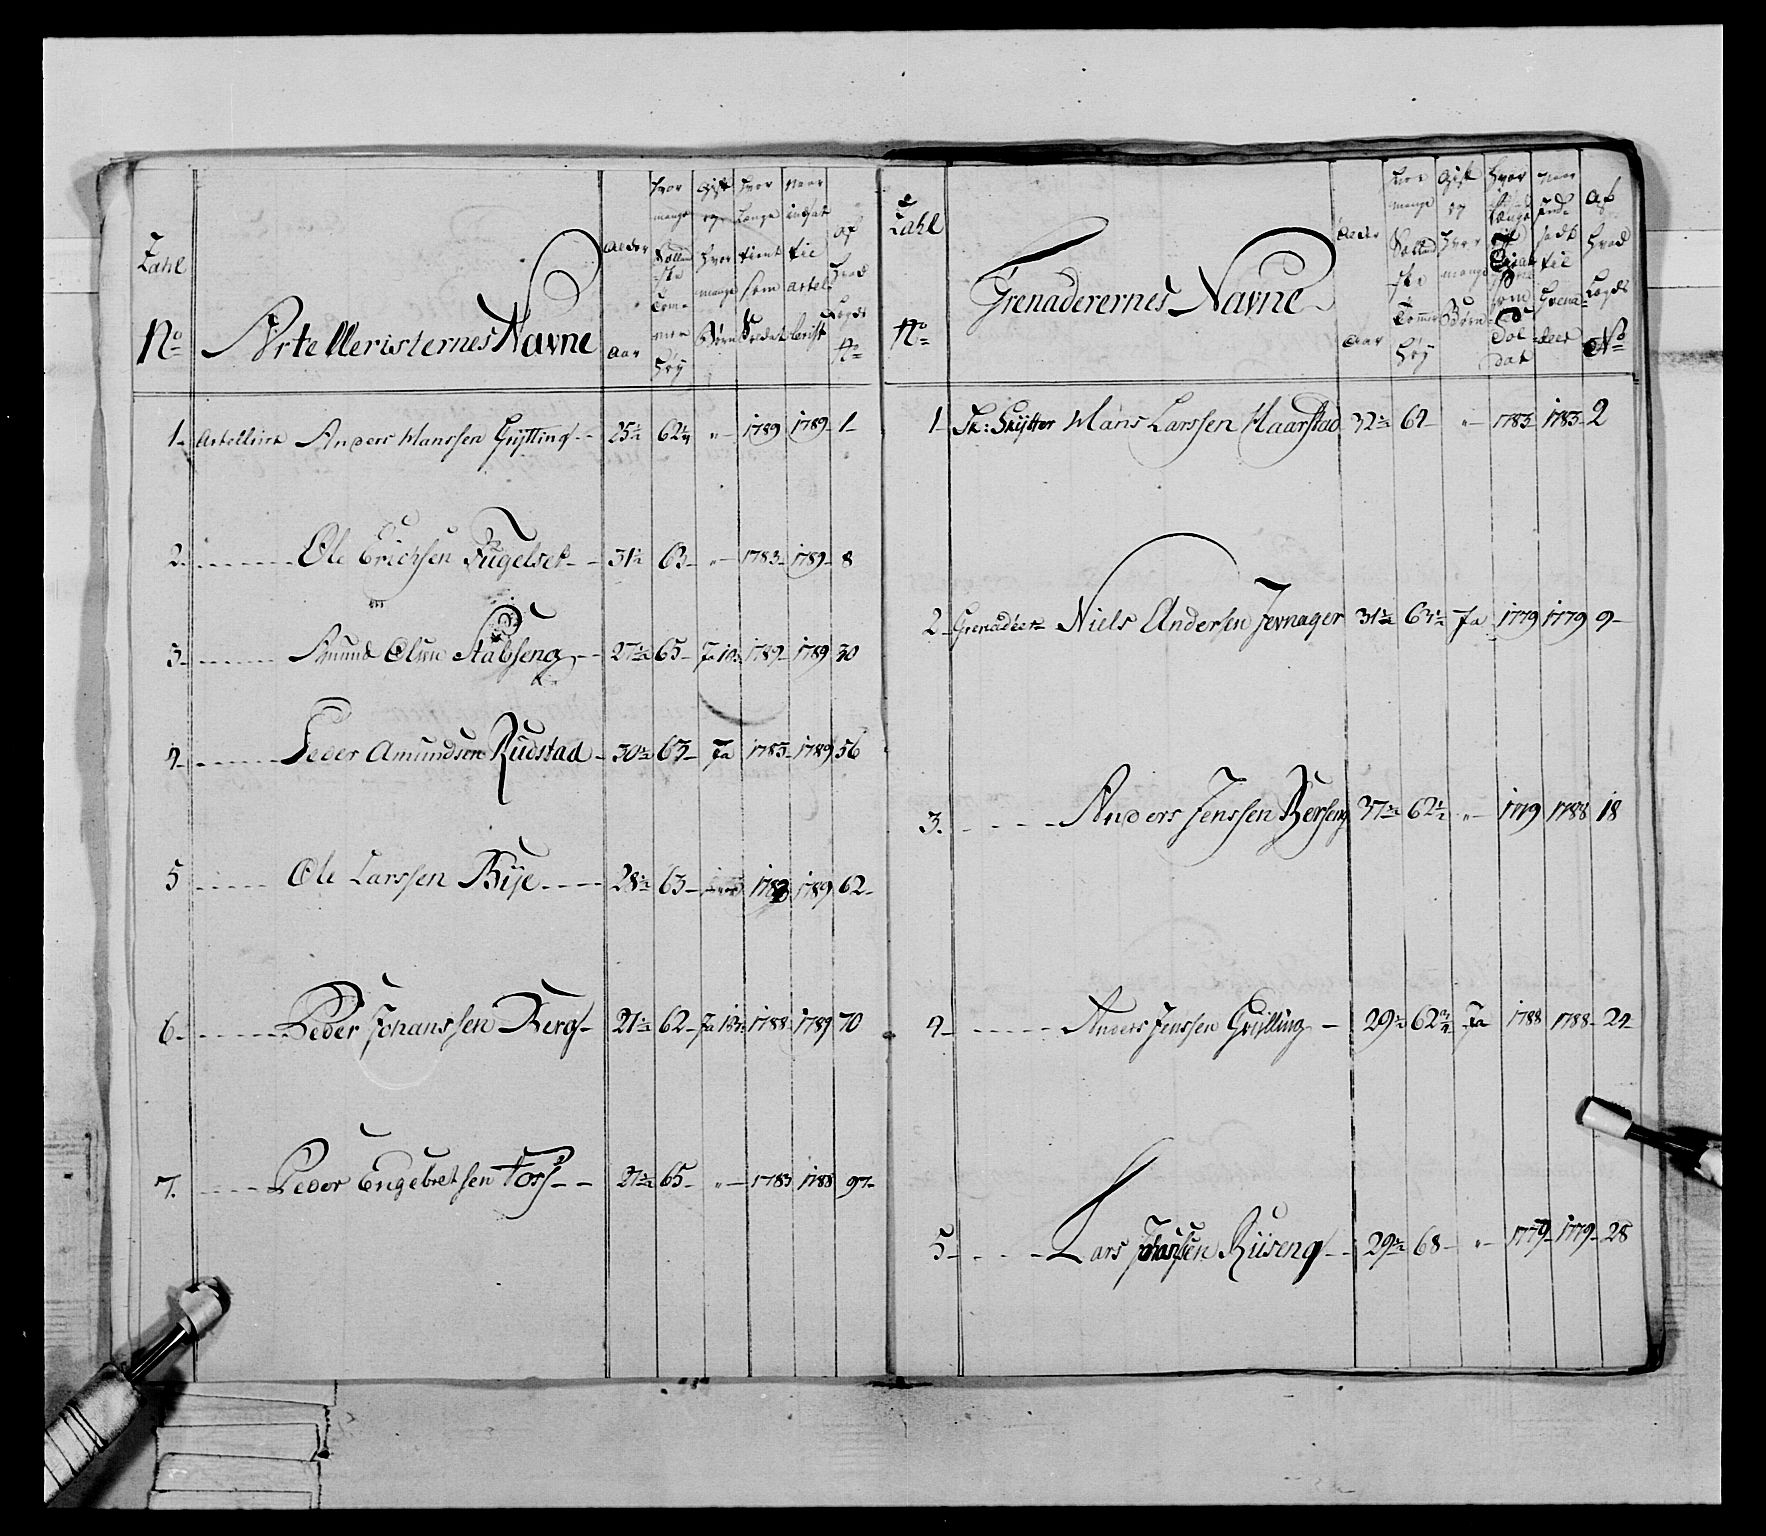 Zahl No Artelleristernes Navne Alder Aar Hvor mange Tommer Høy Gift og Hvor mange Børn Hvor Længe tient som Naar indsat til Af Hvad Lægds No
1 Artellerist Anders Hanssen Grytting 25½ 62¼ " 1789 1789 1
2 Ole Erichsen Fugelset 31½ 63 " 1783 1789 8
3 Amund Olsen Stabseng 27½ 65 Ja 1789 1789 30
4 Peder Amundsen Rudstad 30½ 63 Ja 1783 1789 56
5 Ole Larssen Bye 28½ 63 1789 62
6 Peder Johanssen Berg 21½ 62 Ja 1788 1789 70
7. Peder Engebretsen Fors 27½ 65 " 1783 1788 97
Zahl No Grenaderernes Navne Alder Aar Hvor mange Tommer Høy Gift og Hvor mange Børn Hvor Længe som Soldat Naar indsadt til Grenadeer Af Hvad Lægds No
1 Sk: Skytter Hans Larssen Haarstad 32½ 62 " 1783 1783 2
2 Grenadeer Niels Andersen Jevnager 31½ 63½ Ja 1779 1779 9
3. Anders Jenssen Berseng 37½ 62½ " 1779 1788 18
4 Anders Jenssen Grytting 29½ 62¾ Ja 1788 1788 24
5 Lars Johansen Riiseng 29½ 68 " 1779 1779 28